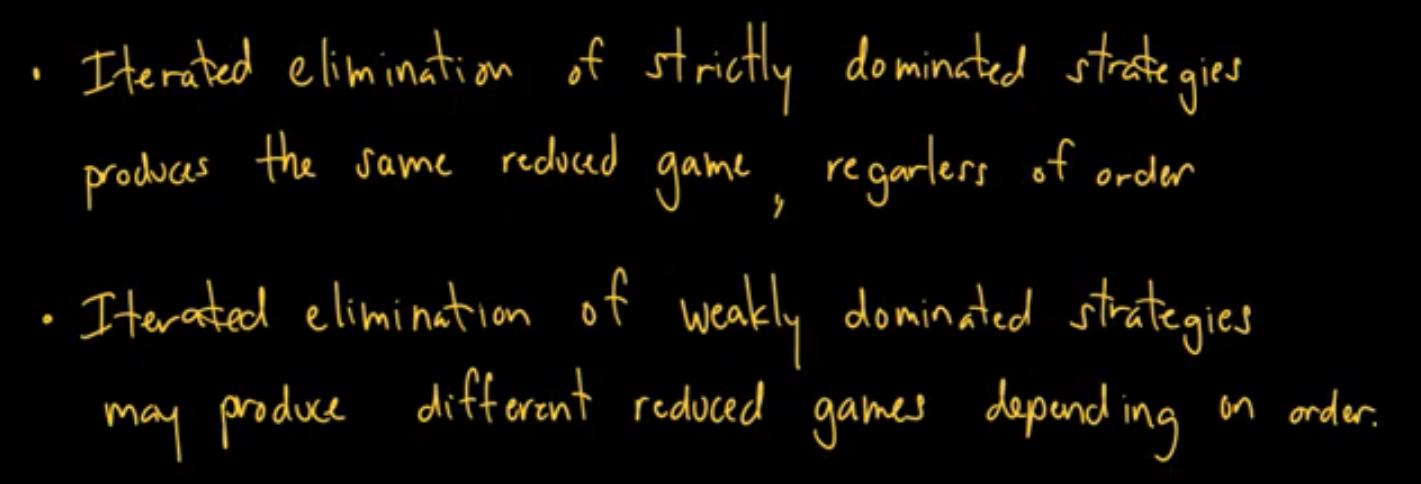 • Iterated elimination of strictly dominated strategies
produces the same reduced game, regarless of order
• Iterated elimination of weakly dominated strategies
may produce different reduced games depending on order.